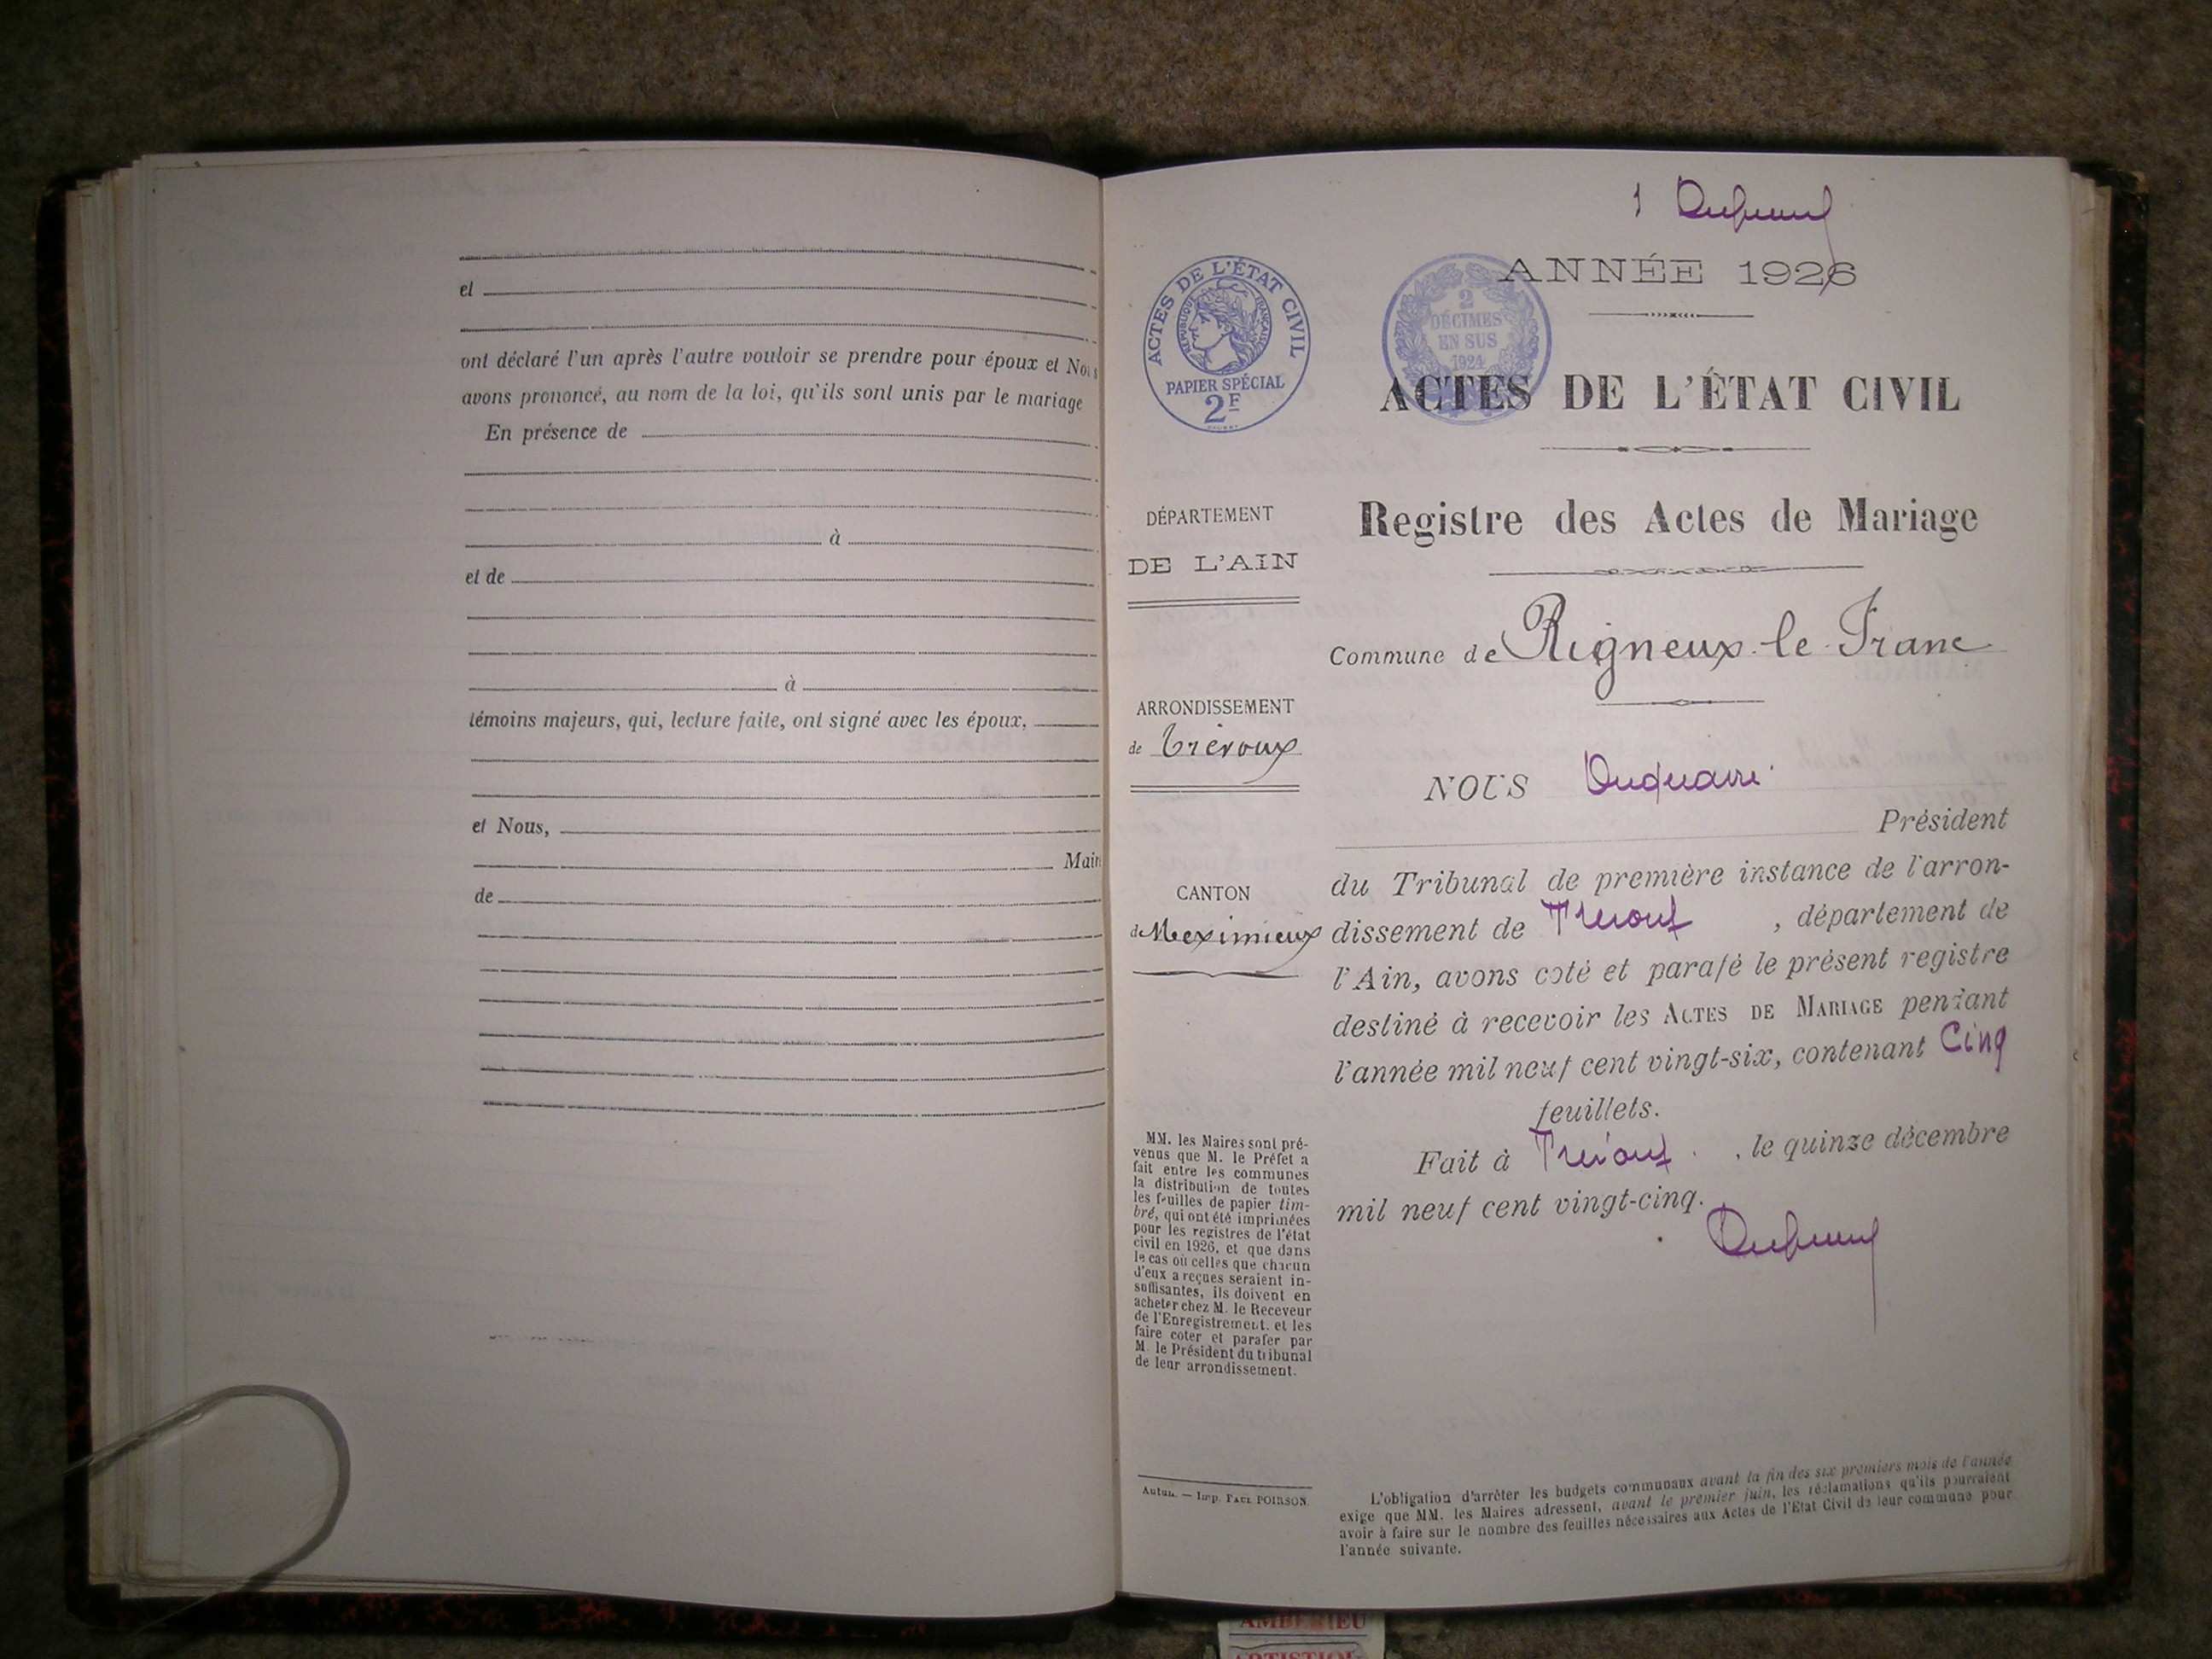 et
ont déclaré l'un après l'autre vouloir se prendre pour époux et Nous
avons prononcé, au nom de la loi, qu'ils sont unis par le mariage
En présence de
à
et de
à
témoins majeurs, qui, lecture faite, ont signé avec les époux,
et Nous,
Mair
de
1
ANNÉE 1926
ACTES DE L'ÉTAT CIVIL
RÉPUBLIQUE FRANÇAISE
PAPIER SPÉCIAL
2F
2
DÉCIMES
EN SUS
1924
ACTES DE L'ÉTAT CIVIL
Registre des Actes de Mariage
DÉPARTEMENT
DE L'AIN
Commune de Rigneux-le-Franc
ARRONDISSEMENT
de Trévoux
CANTON
de Meximieux
NOUS
Président
du Tribunal de première instance de l'arron-
dissement de Trevoux, département de
l'Ain, avons coté et parafé le présent registre
destiné à recevoir les ACTES DE MARIAGE pendant
l'année mil neuf cent vingt-six, contenant Cinq
feuillets.
Fait à Trévoux, le quinze décembre
mil neuf cent vingt-cinq.
MM. les Maires sont pré-
venus que M. le Préfet a
fait entre les communes
la distribution de toutes
les feuilles de papier tim-
bré, qui ont été imprimées
pour les registres de l'état
civil en 1926, et que dans
le cas où celles que chacun
d'eux a reçues seraient in-
suffisantes, ils doivent en
acheter chez M. le Receveur
de l'Enregistrement. et les
faire coter et parafer par
M. le Président du tribunal
de leur arrondissement.
Autun. — Imp. PAUL POIRSON.
L'obligation d'arrêter les budgets communaux avant la fin des six premiers mois de l'année
exige que MM. les Maires adressent, avant le premier juin, les réclamations qu'ils pourraient
avoir à faire sur le nombre des feuilles nécessaires aux Actes de l'Etat Civil de leur commune pour
l'année suivante.
AMBERIEU